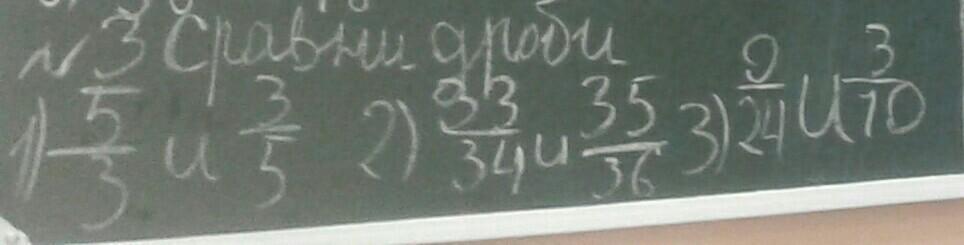 №3 Сравни дроби
1) 5/3 и 3/5 2) 33/34 и 35/36 3) 9/24 и 3/10